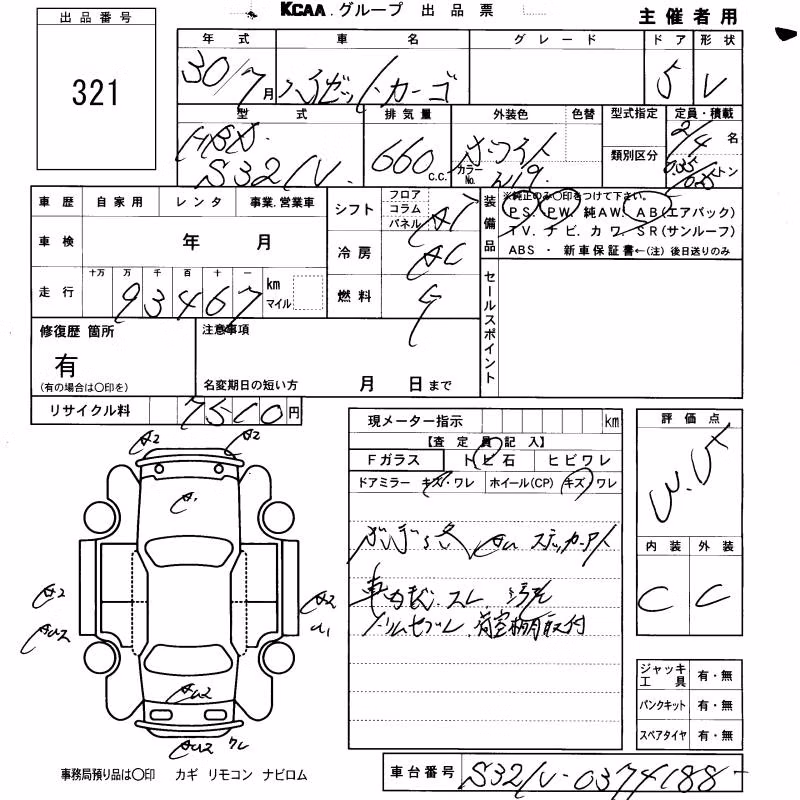 KCAA.グループ 出品票
主催者用
出品番号
321
年式 車名 グレード ドア 形状
30/7月 ハイゼットカーゴ 5 V
型式 排気量 外装色 色替 型式指定 定員・積載
HBD S321V 660c.c. ホワイト カラーNo. W19 類別区分 2/4名
0.35/0.25トン
車歴 自家用 レンタ 事業.営業車
車検 年 月
走行 十万 万 千 百 十 一 km マイル
93467
シフト フロア コラム パネル AT
冷房 AC
燃料 G
装備品
※純正のみ〇印をつけて下さい。
PS. PW. 純AW. AB(エアバック)
TV. ナビ. カワ. SR(サンルーフ)
ABS ・ 新車保証書←(注) 後日送りのみ
セールスポイント
修復歴 箇所
有
(有の場合は〇印を)
注意事項
名変期日の短い方 月 日まで
リサイクル料 7510円
現メーター指示 km
【査定員記入】
Fガラス トビ石 ヒビワレ
ドアミラー キズ・ワレ ホイール(CP) キズ ワレ
ステッカーアト
スレ 汚れ
荷室棚取付
評価点
内装 外装
C C
ジャッキ工具 有・無
パンクキット 有・無
スペアタイヤ 有・無
A2 A2
A1
A2
A2
U1
ワレ
事務局預り品は〇印 カギ リモコン ナビロム
車台番号 S321V-0374188